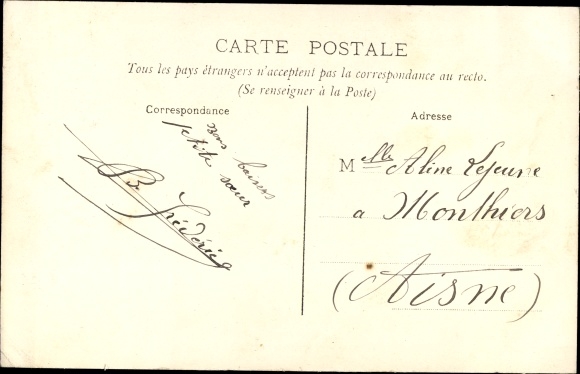 CARTE POSTALE
Tous les pays étrangers n'acceptent pas la correspondance au recto.
(Se renseigner à la Poste)
Correspondance
Bons baisers
petite sœur
Frédéric
Adresse
Mlle Aline Lejeune
a Monthiers
(Aisne)